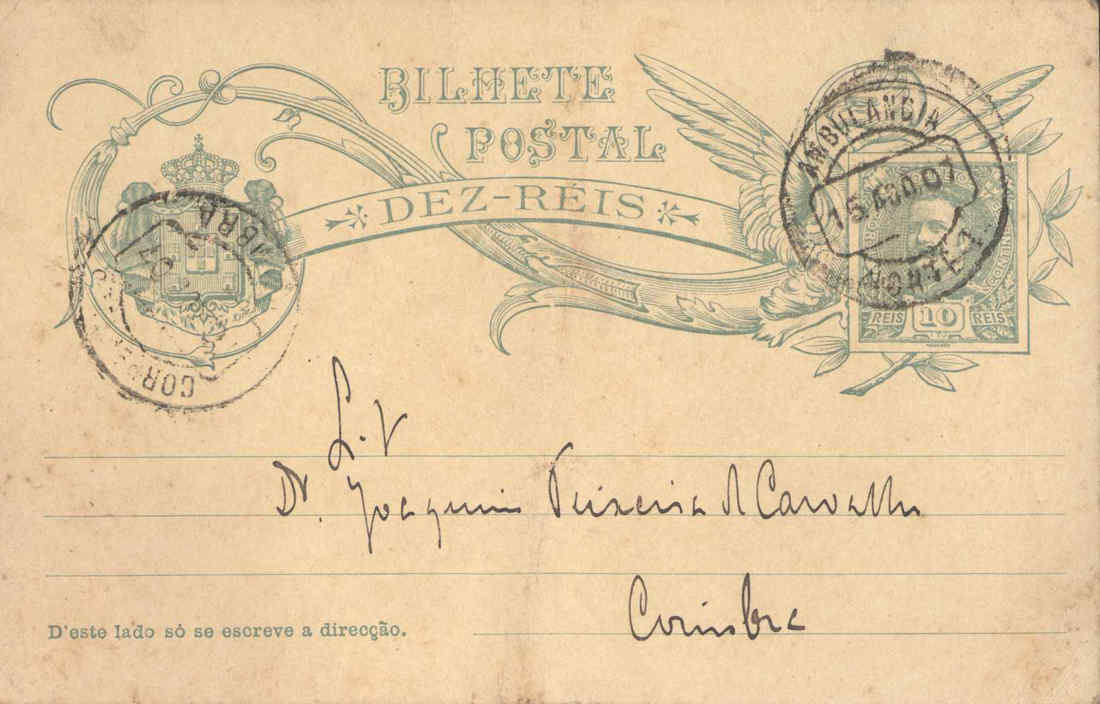 BILHETE
POSTAL
DEZ-RÉIS
AMBULANCIA
15 AGO. 07
NORTE
REIS 10 REIS
D. Joaquim Teixeira d Carvalho
Coimbra
D'este lado só se escreve a direcção.